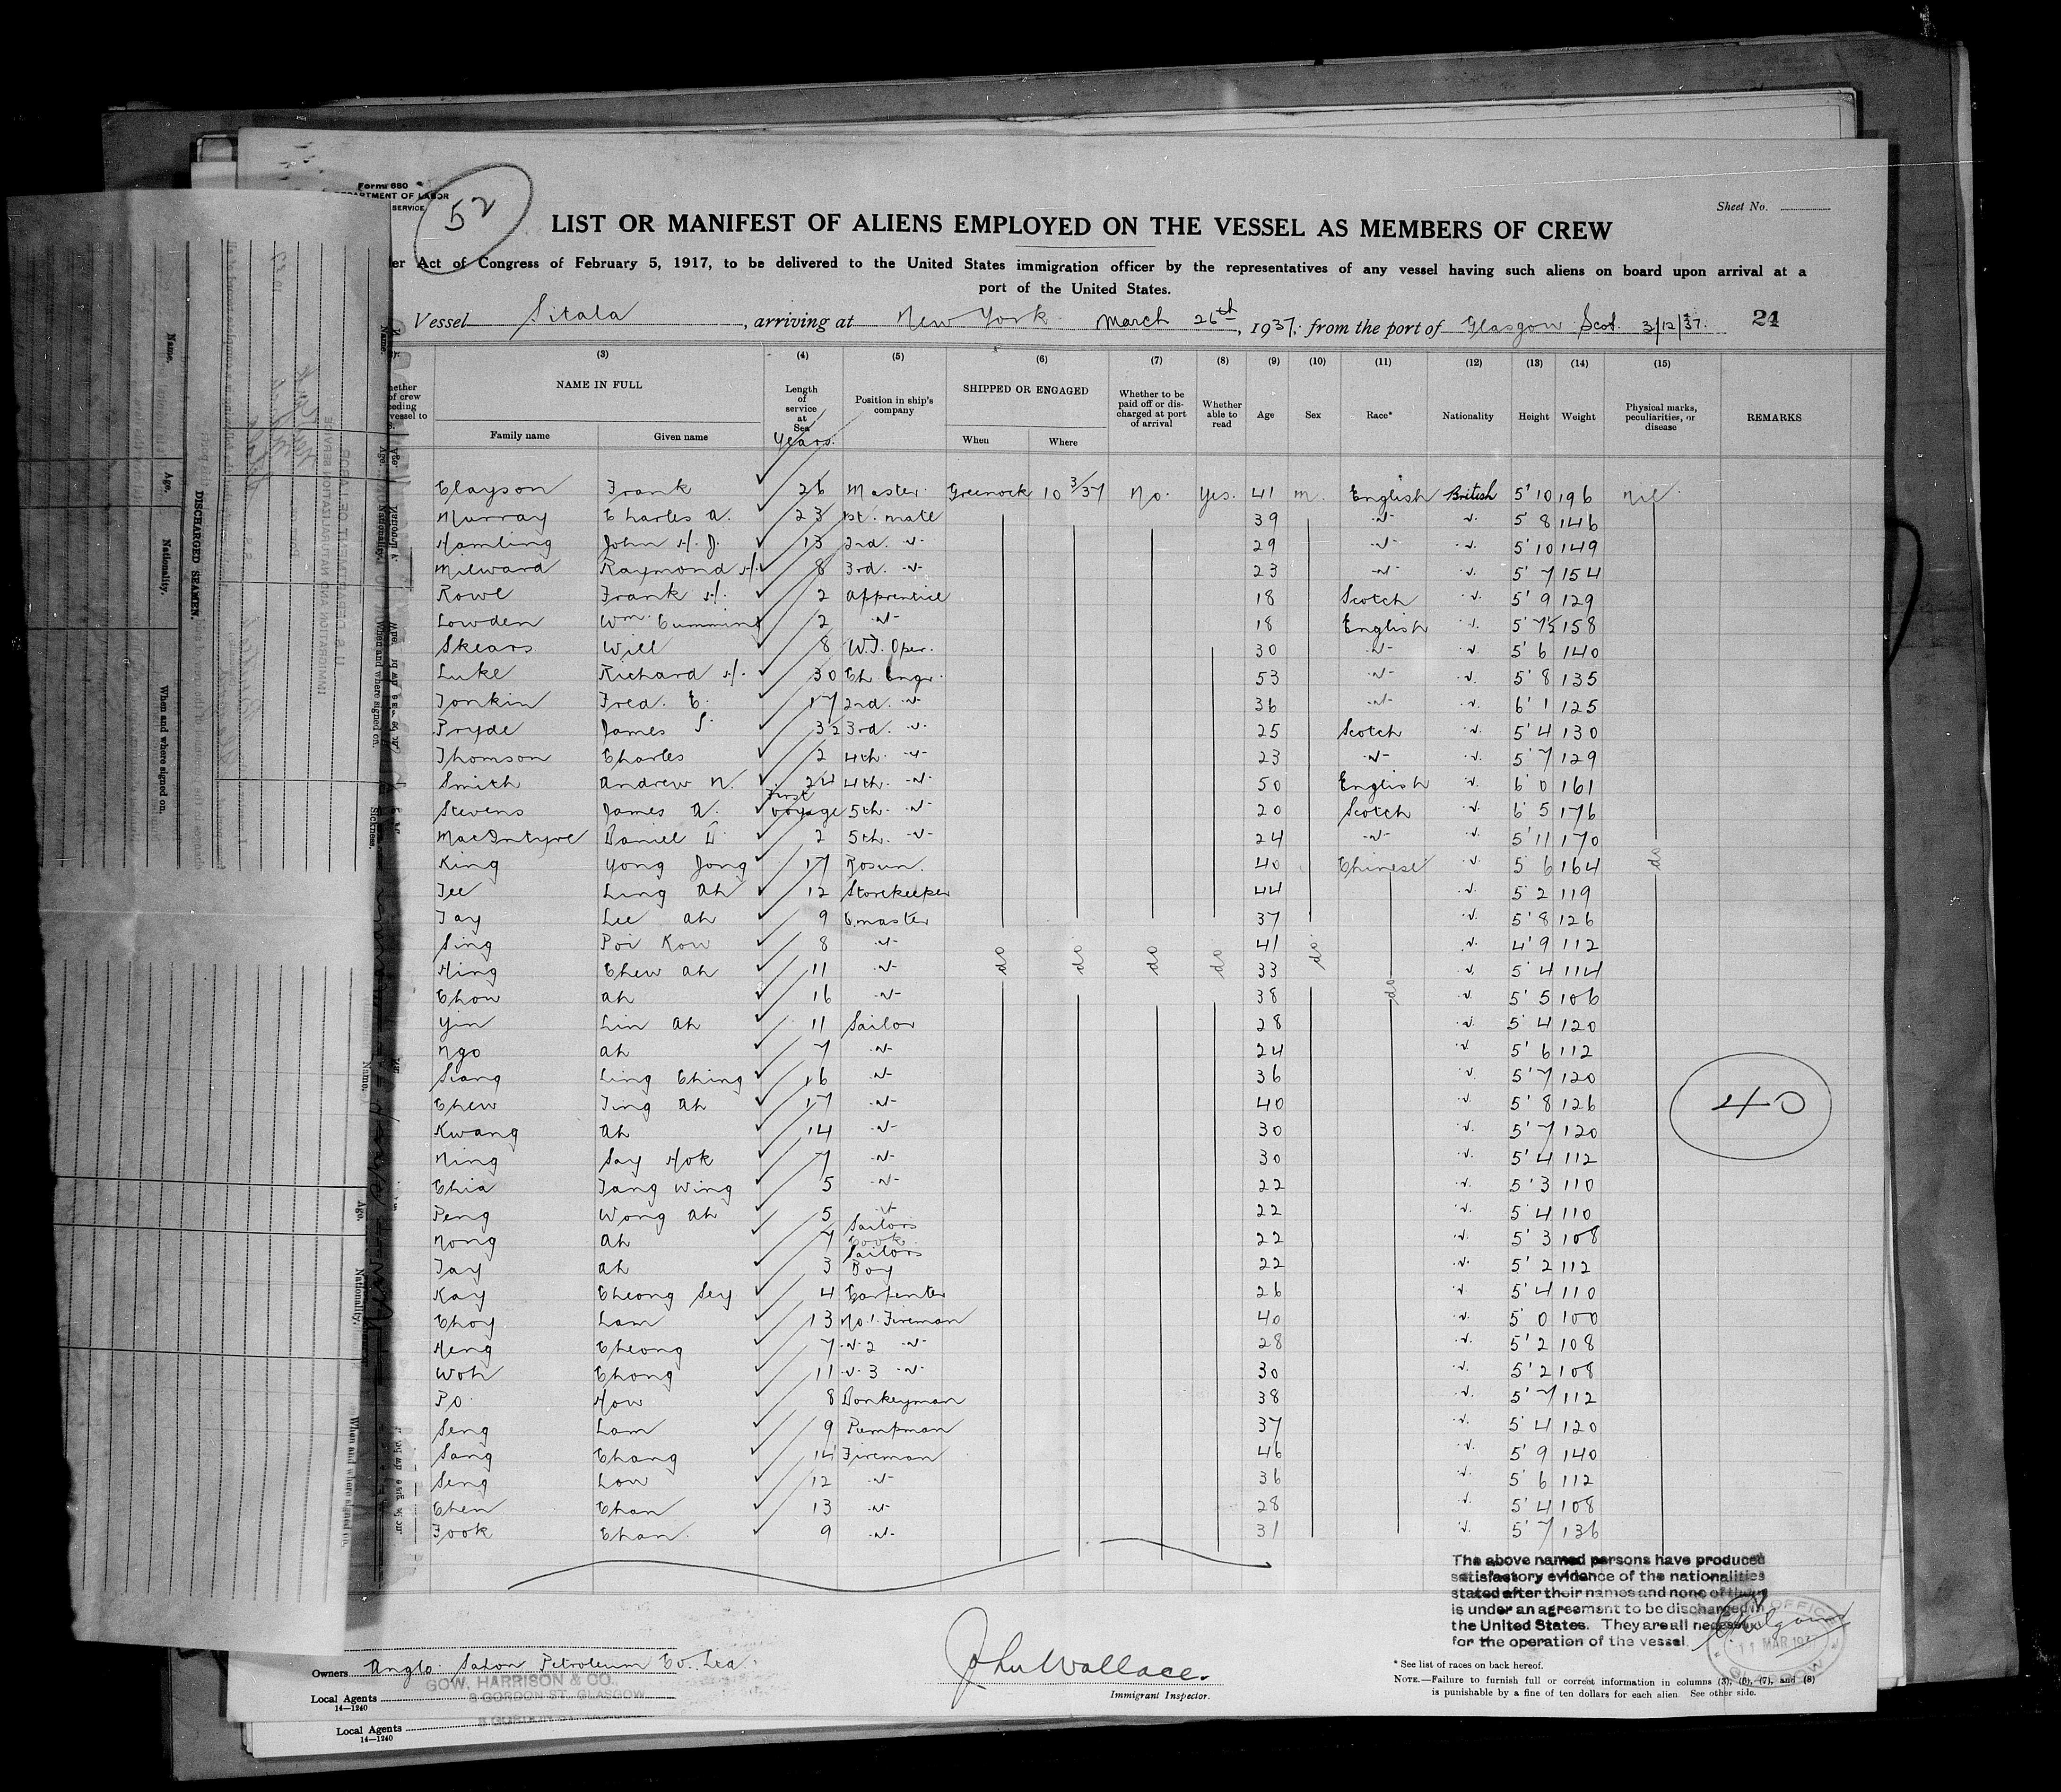 Form 680
SERVICE
52
Sheet No.
LIST OR MANIFEST OF ALIENS EMPLOYED ON THE VESSEL AS MEMBERS OF CREW
Act of Congress of February 5, 1917, to be delivered to the United States immigration officer by the representatives of any vessel having such aliens on board upon arrival at a
port of the United States.
Vessel Sitala, arriving at New York March 26th, 1937, from the port of Glasgow Scot. 3/12/37. 24
(3) (4) (5) (6) (7) (8) (9) (10) (11) (12) (13) (14) (15)
NAME IN FULL Family name Given name
Length of service at Sea Years.
Position in ship's company
SHIPPED OR ENGAGED When Where
Whether to be paid off or discharged at port of arrival
Whether able to read
Age Sex Race* Nationality Height Weight
Physical marks, peculiarities, or disease
REMARKS
Clayson Frank 26 Master Greenock 10 3/37 No. Yes. 41 m. English British 5' 10 196 Nil
Murray Charles A. 23 1st. mate 39 -"- " 5' 8 146
Hamling John H. J. 13 2nd. " 29 -"- " 5' 10 149
Milward Raymond H. 8 3rd. " 23 -"- " 5' 7 154
Rowe Frank H. 2 Apprentice 18 Scotch " 5' 9 129
Lowden Wm. Cumming 2 -"- 18 English " 5' 7½ 158
Skears Will 8 W.T. Oper. 30 -"- " 5' 6 140
Luke Richard H. 30 Ch. Engr. 53 -"- " 5' 8 135
Tonkin Fred. C. 17 2nd. " 36 -"- " 6' 1 125
Pryde James S. 32 3rd. " 25 Scotch " 5' 4 130
Thomson Charles 2 4th. " 23 -"- " 5' 7 129
Smith Andrew N. 24 4th. " 50 English " 6' 0 161
Stevens James A. First voyage 5th. " 20 Scotch " 6' 5 176
MacIntyre Daniel D. 2 5th. " 24 -"- " 5' 11 170
King Yong Jong 17 Bosun. 40 Chinese " 5' 6 164 do
Tee Ling Ah 12 Storekeeper 44 " 5' 2 119
Tay Lee Ah 9 Q.master 37 " 5' 8 126
Sing Poi Kow 8 -"- 41 " 4' 9 112
Hing Chew Ah 11 -"- do do do do 33 do " 5' 4 114
Chow Ah 16 -"- 38 do " 5' 5 106
Yin Lin Ah 11 Sailor 28 " 5' 4 120
Ngo Ah 7 -"- 24 " 5' 6 112
Siang Ling Ching 16 -"- 36 " 5' 7 120
Chew Ting Ah 17 -"- 40 " 5' 8 126 40
Kwang Ah 14 -"- 30 " 5' 7 120
Ming Say Hok 7 -"- 30 " 5' 4 112
Chia Tang Wing 5 -"- 22 " 5' 3 110
Peng Wong Ah 5 " 22 " 5' 4 110
Nong Ah 7 Sailors Cook 22 " 5' 3 108
Tay Ah 3 Sailors Boy 22 " 5' 2 112
Kay Cheong Sey 4 Carpenter 26 " 5' 4 110
Choy Lam 13 No. 1. Fireman 40 " 5' 0 100
Heng Cheong 7 " 2 " 28 " 5' 2 108
Woh Chong 11 " 3 " 30 " 5' 2 108
Po How 8 Donkeyman 38 " 5' 7 112
Seng Lam 9 Pumpman 37 " 5' 4 120
Sang Chang 14 Fireman 46 " 5' 9 140
Seng Low 12 -"- 36 " 5' 6 112
Chen Chan 13 -"- 28 " 5' 4 108
Fook Chan 9 -"- 31 " 5' 7 136
The above named persons have produced
satisfactory evidence of the nationalities
stated after their names and none of them
is under an agreement to be discharged in
the United States. They are all necessary
for the operation of the vessel.
11 MAR 1937
GLASGOW
Owners Anglo Saxon Petroleum Co. Ltd.
GOW, HARRISON & CO.
Local Agents 8 GORDON ST, GLASGOW
14—1240
John Wallace.
Immigrant Inspector.
* See list of races on back hereof.
NOTE.—Failure to furnish full or correct information in columns (3), (6), (7), and (8)
is punishable by a fine of ten dollars for each alien. See other side.
Local Agents
14—1240
DISCHARGED SEAMEN.
Name. Age. Nationality. When and where signed on.
U. S. DEPARTMENT OF LABOR
IMMIGRATION AND NATURALIZATION SERVICE
Sickness.